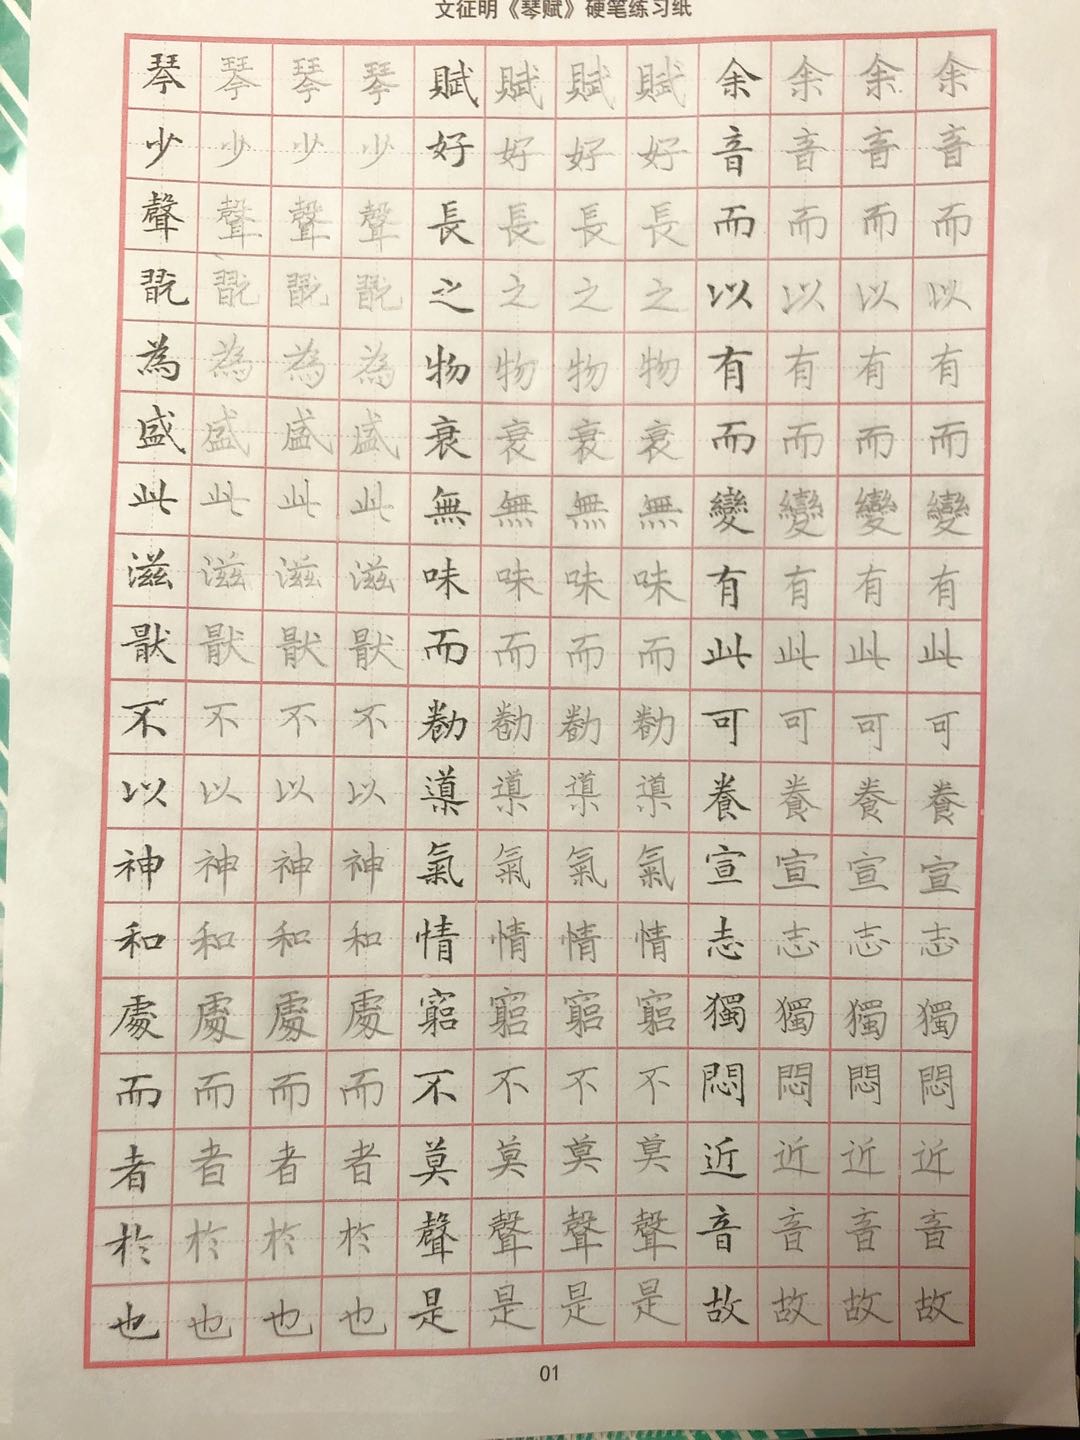 文征明《琴赋》硬笔练习纸
琴琴琴琴賦賦賦賦余余余余
少少少少好好好好音音音音
聲聲聲聲長長長長而而而而
翫翫翫翫之之之之以以以以
為為為為物物物物有有有有
盛盛盛盛衰衰衰衰而而而而
此此此此無無無無變變變變
滋滋滋滋味味味味有有有有
猒猒猒猒而而而而此此此此
不不不不勌勌勌勌可可可可
以以以以導導導導養養養養
神神神神氣氣氣氣宣宣宣宣
和和和和情情情情志志志志
處處處處窮窮窮窮獨獨獨獨
而而而而不不不不悶悶悶悶
者者者者莫莫莫莫近近近近
於於於於聲聲聲聲音音音音
也也也也是是是是故故故故
01